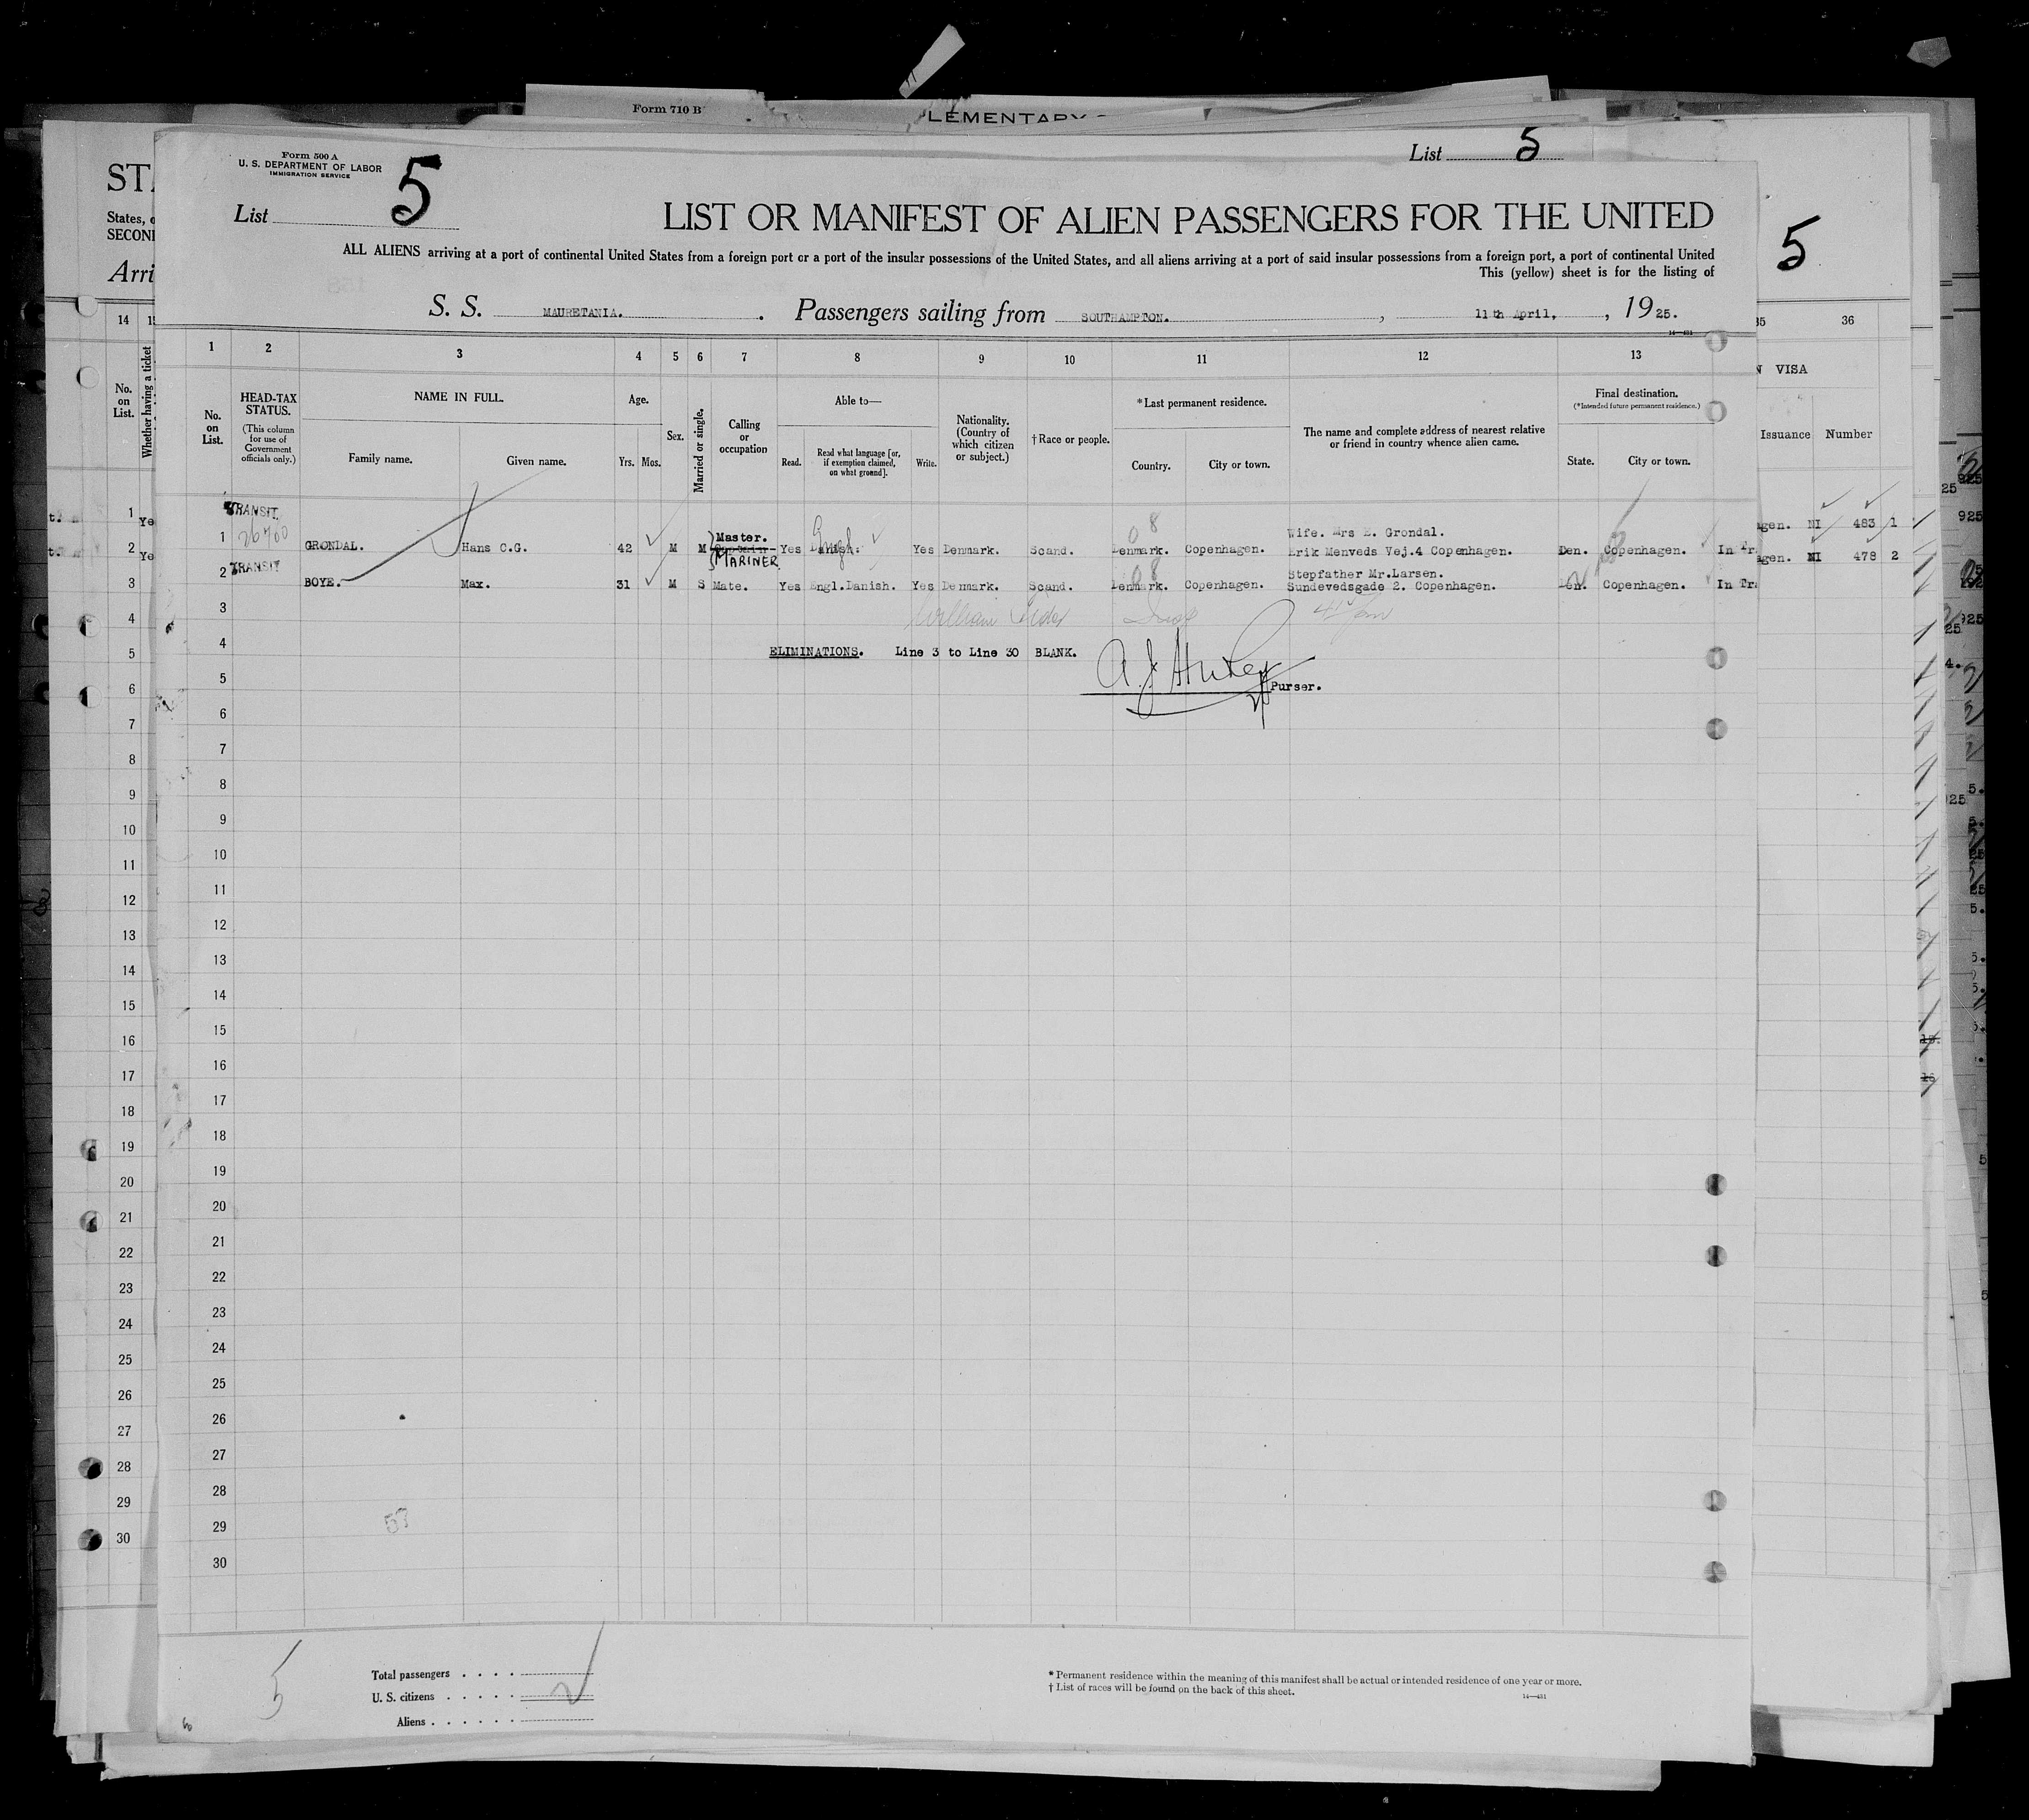 Form 710 B
LEMENTARY
List 5
Form 500 A
U. S. DEPARTMENT OF LABOR
IMMIGRATION SERVICE
List 5
LIST OR MANIFEST OF ALIEN PASSENGERS FOR THE UNITED
ALL ALIENS arriving at a port of continental United States from a foreign port or a port of the insular possessions of the United States, and all aliens arriving at a port of said insular possessions from a foreign port, a port of continental United
This (yellow) sheet is for the listing of
S. S. MAURETANIA. Passengers sailing from SOUTHAMPTON., 11th April, , 1925.
14—431
1 2 3 4 5 6 7 8 9 10 11 12 13
No. on List.
HEAD-TAX STATUS.
(This column for use of Government officials only.)
NAME IN FULL.
Family name. Given name.
Age.
Yrs. Mos.
Sex.
Married or single.
Calling or occupation
Able to—
Read. Read what language [or, if exemption claimed, on what ground]. Write.
Nationality. (Country of which citizen or subject.)
† Race or people.
*Last permanent residence.
Country. City or town.
The name and complete address of nearest relative or friend in country whence alien came.
Final destination.
(*Intended future permanent residence.)
State. City or town.
TRANSIT
26700
Master.
Wife. Mrs E. Grondal.
1 GRONDAL. Hans C.G. 42 M M Captain Yes Danish. Engl. Yes Denmark. Scand. Denmark. Copenhagen. Erik Menveds Vej.4 Copenhagen. Den. Copenhagen. In Tr.
MARINER
TRANSIT
08
Stepfather Mr.Larsen.
2 BOYE. Max. 31 M S Mate. Yes Engl.Danish. Yes Denmark. Scand. Denmark. Copenhagen. Sundevedsgade 2. Copenhagen. Den. Copenhagen. In Tr.
08
3
William
4
ELIMINATIONS. Line 3 to Line 30 BLANK.
5
Purser.
6
7
8
9
10
11
12
13
14
15
16
17
18
19
20
21
22
23
24
25
26
27
28
29
30
53
5
Total passengers
U. S. citizens
Aliens
2
* Permanent residence within the meaning of this manifest shall be actual or intended residence of one year or more.
† List of races will be found on the back of this sheet.
14—431
STA
States, o
SECON
Arri
14 15
No. on List.
Whether having a ticket
1 Ye
2 Ye
3
4
5
6
7
8
9
10
11
12
13
14
15
16
17
18
19
20
21
22
23
24
25
26
27
28
29
30
5
35 36
N VISA
Issuance Number
agen. NI 483 1
agen. NI 478 2